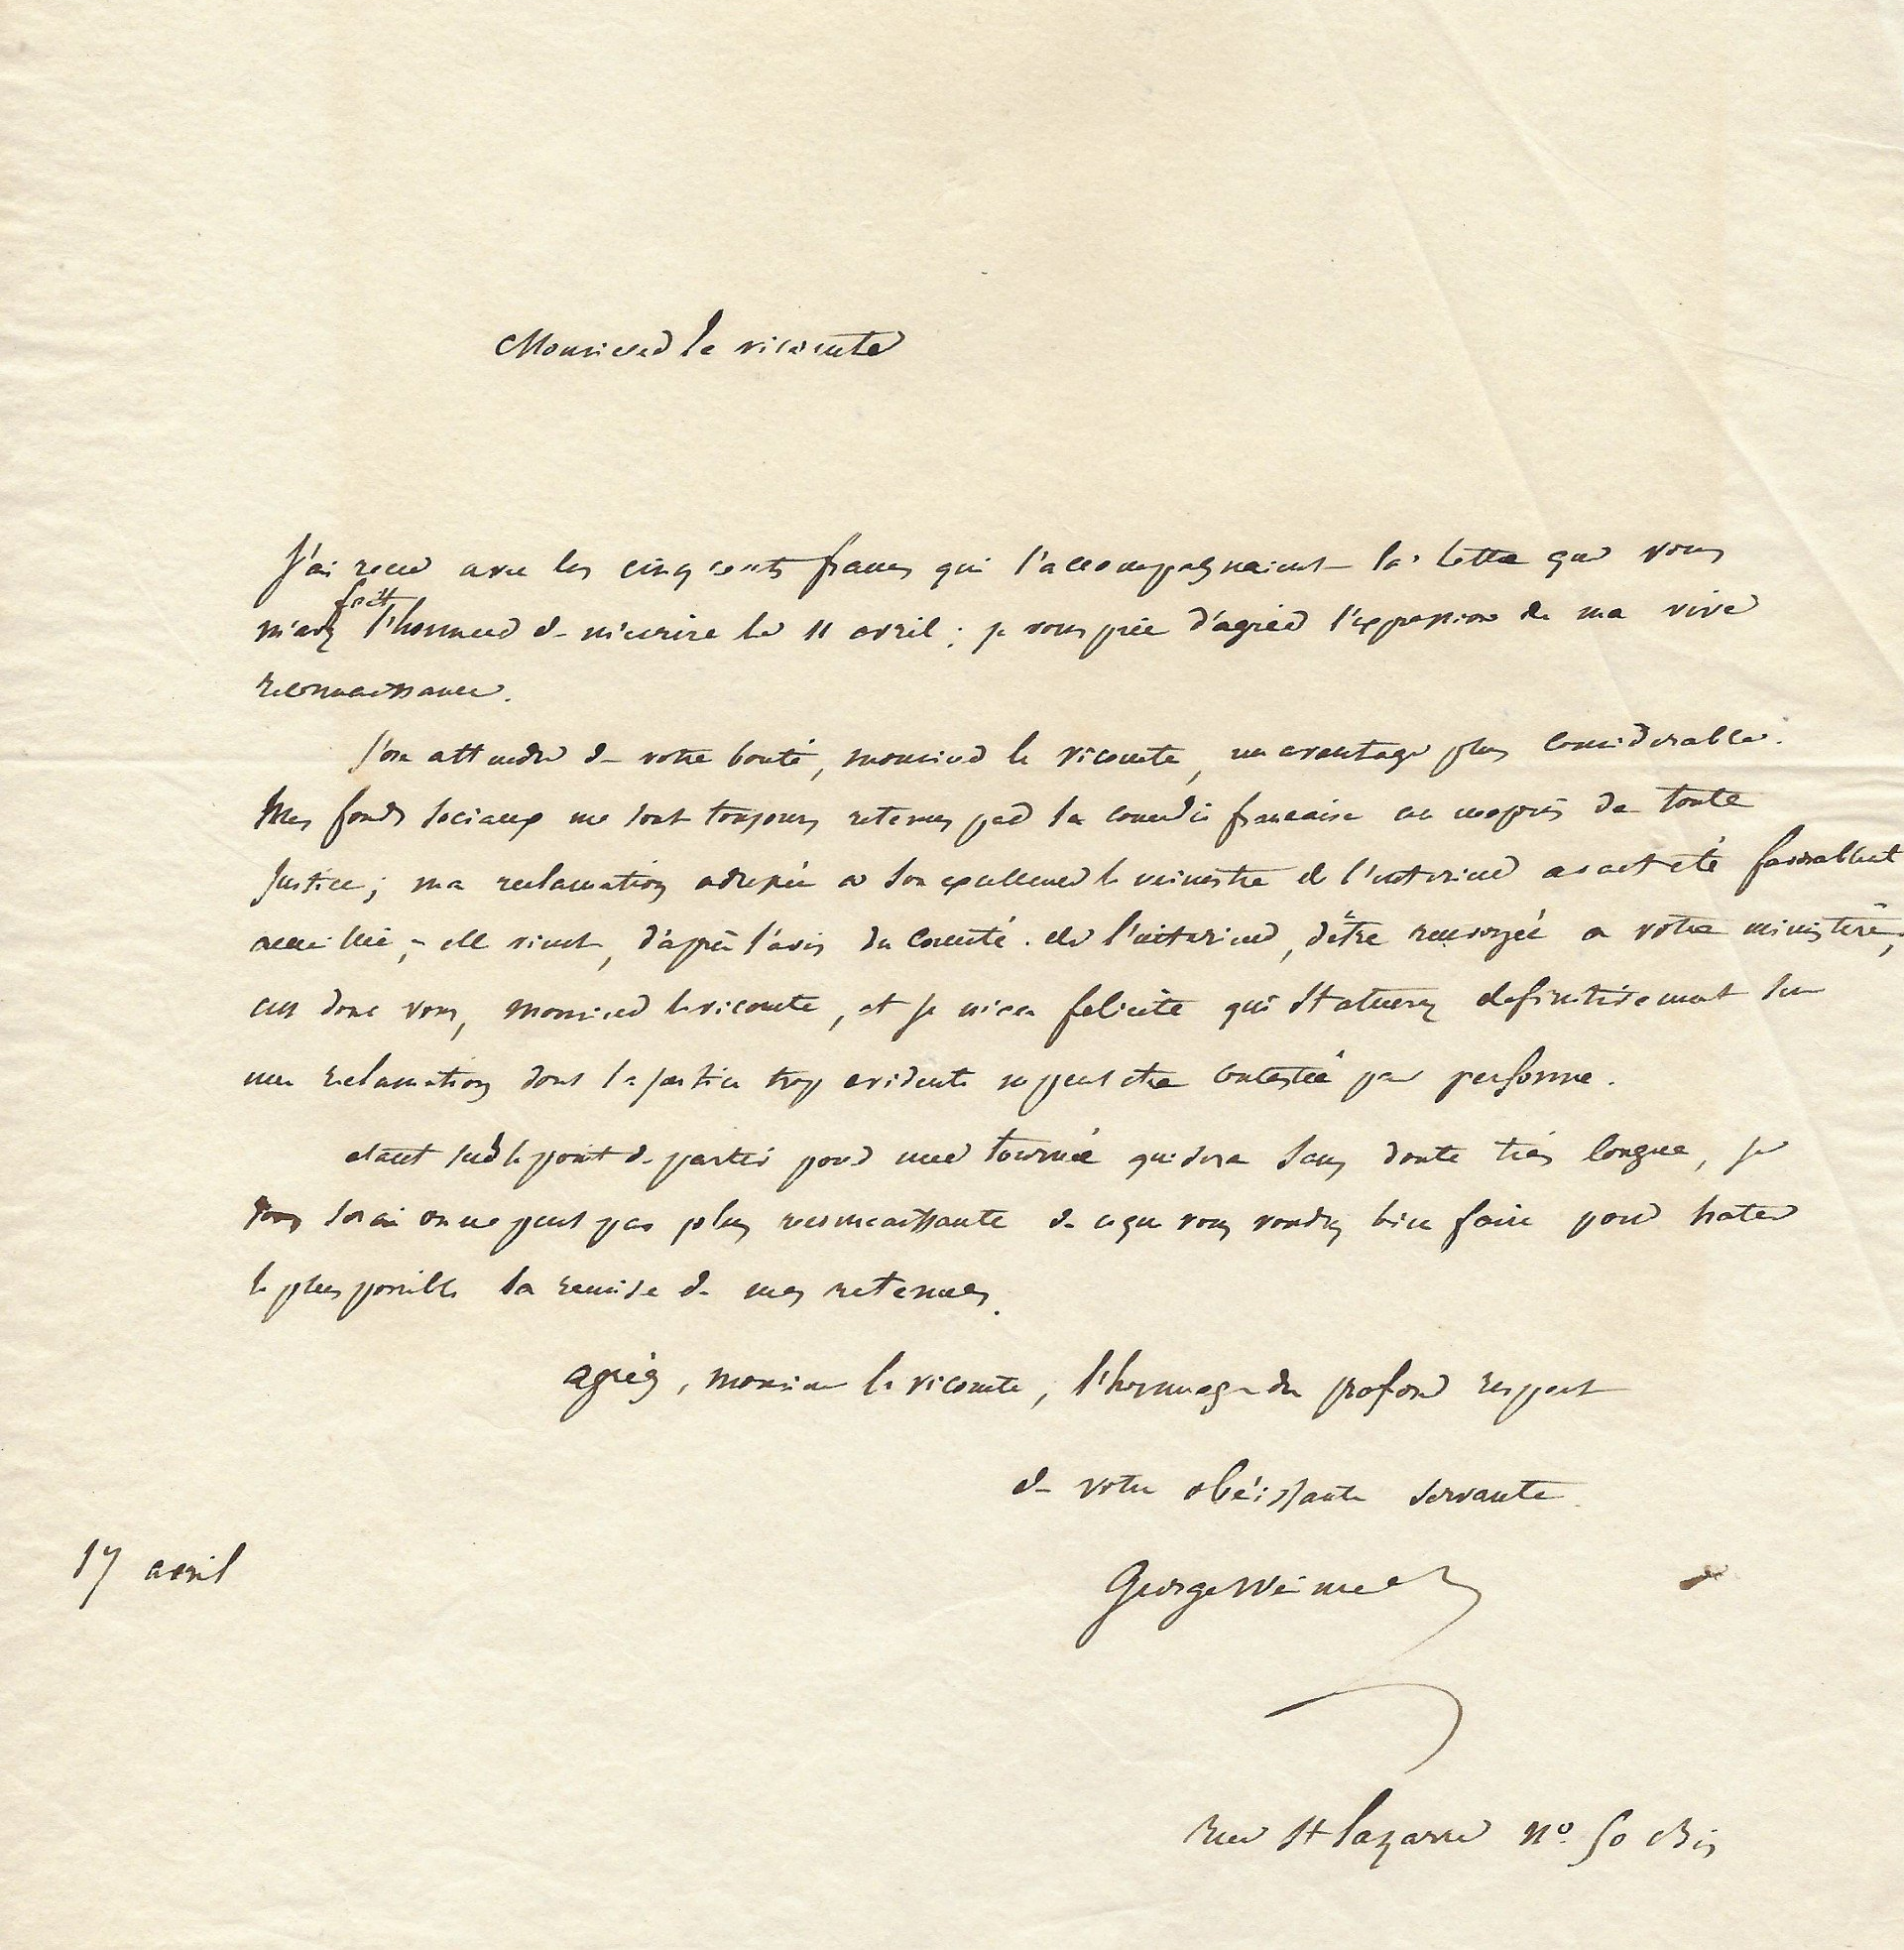 Monsieur le vicomte
J'ai recu avec les cinq cents francs qui l'accompagnaient la lettre que vous
fait
m'avez l'honneur de m'ecrire le 11 avril ; je vous prie d'agréer l'expression de ma vive
reconnaissance.
J'ose attendre de votre bonté, monsieur le vicomte, un avantage plus considerable.
Mes fonds sociaux me sont toujours retenus par la comedie francaise au mepris de toute
justice ; ma reclamation adressée a son excellence le ministre de l'interieur avait eté favorablemt
accueillie, elle vient, d'après l'avis du comité de l'interieur, d'être renvoyée a votre ministère,
c'est donc vous, monsieur le vicomte, et je m'en felicite qui statuerez definitivement sur
une reclamation dont la justice trop evidente ne peut etre contestée par personne.
etant sur le point de partir pour une tournée qui sera sans doute très longue, je
vous serai on ne peut pas plus reconnaissante de ce que vous voudrez bien faire pour hater
le plus possible la remise de mes retenues.
agréez, monsieur le vicomte, l'hommage du profond respect
de votre obéissante servante
17 avril
George Weimer
rue St lazarre n° 50 Bis